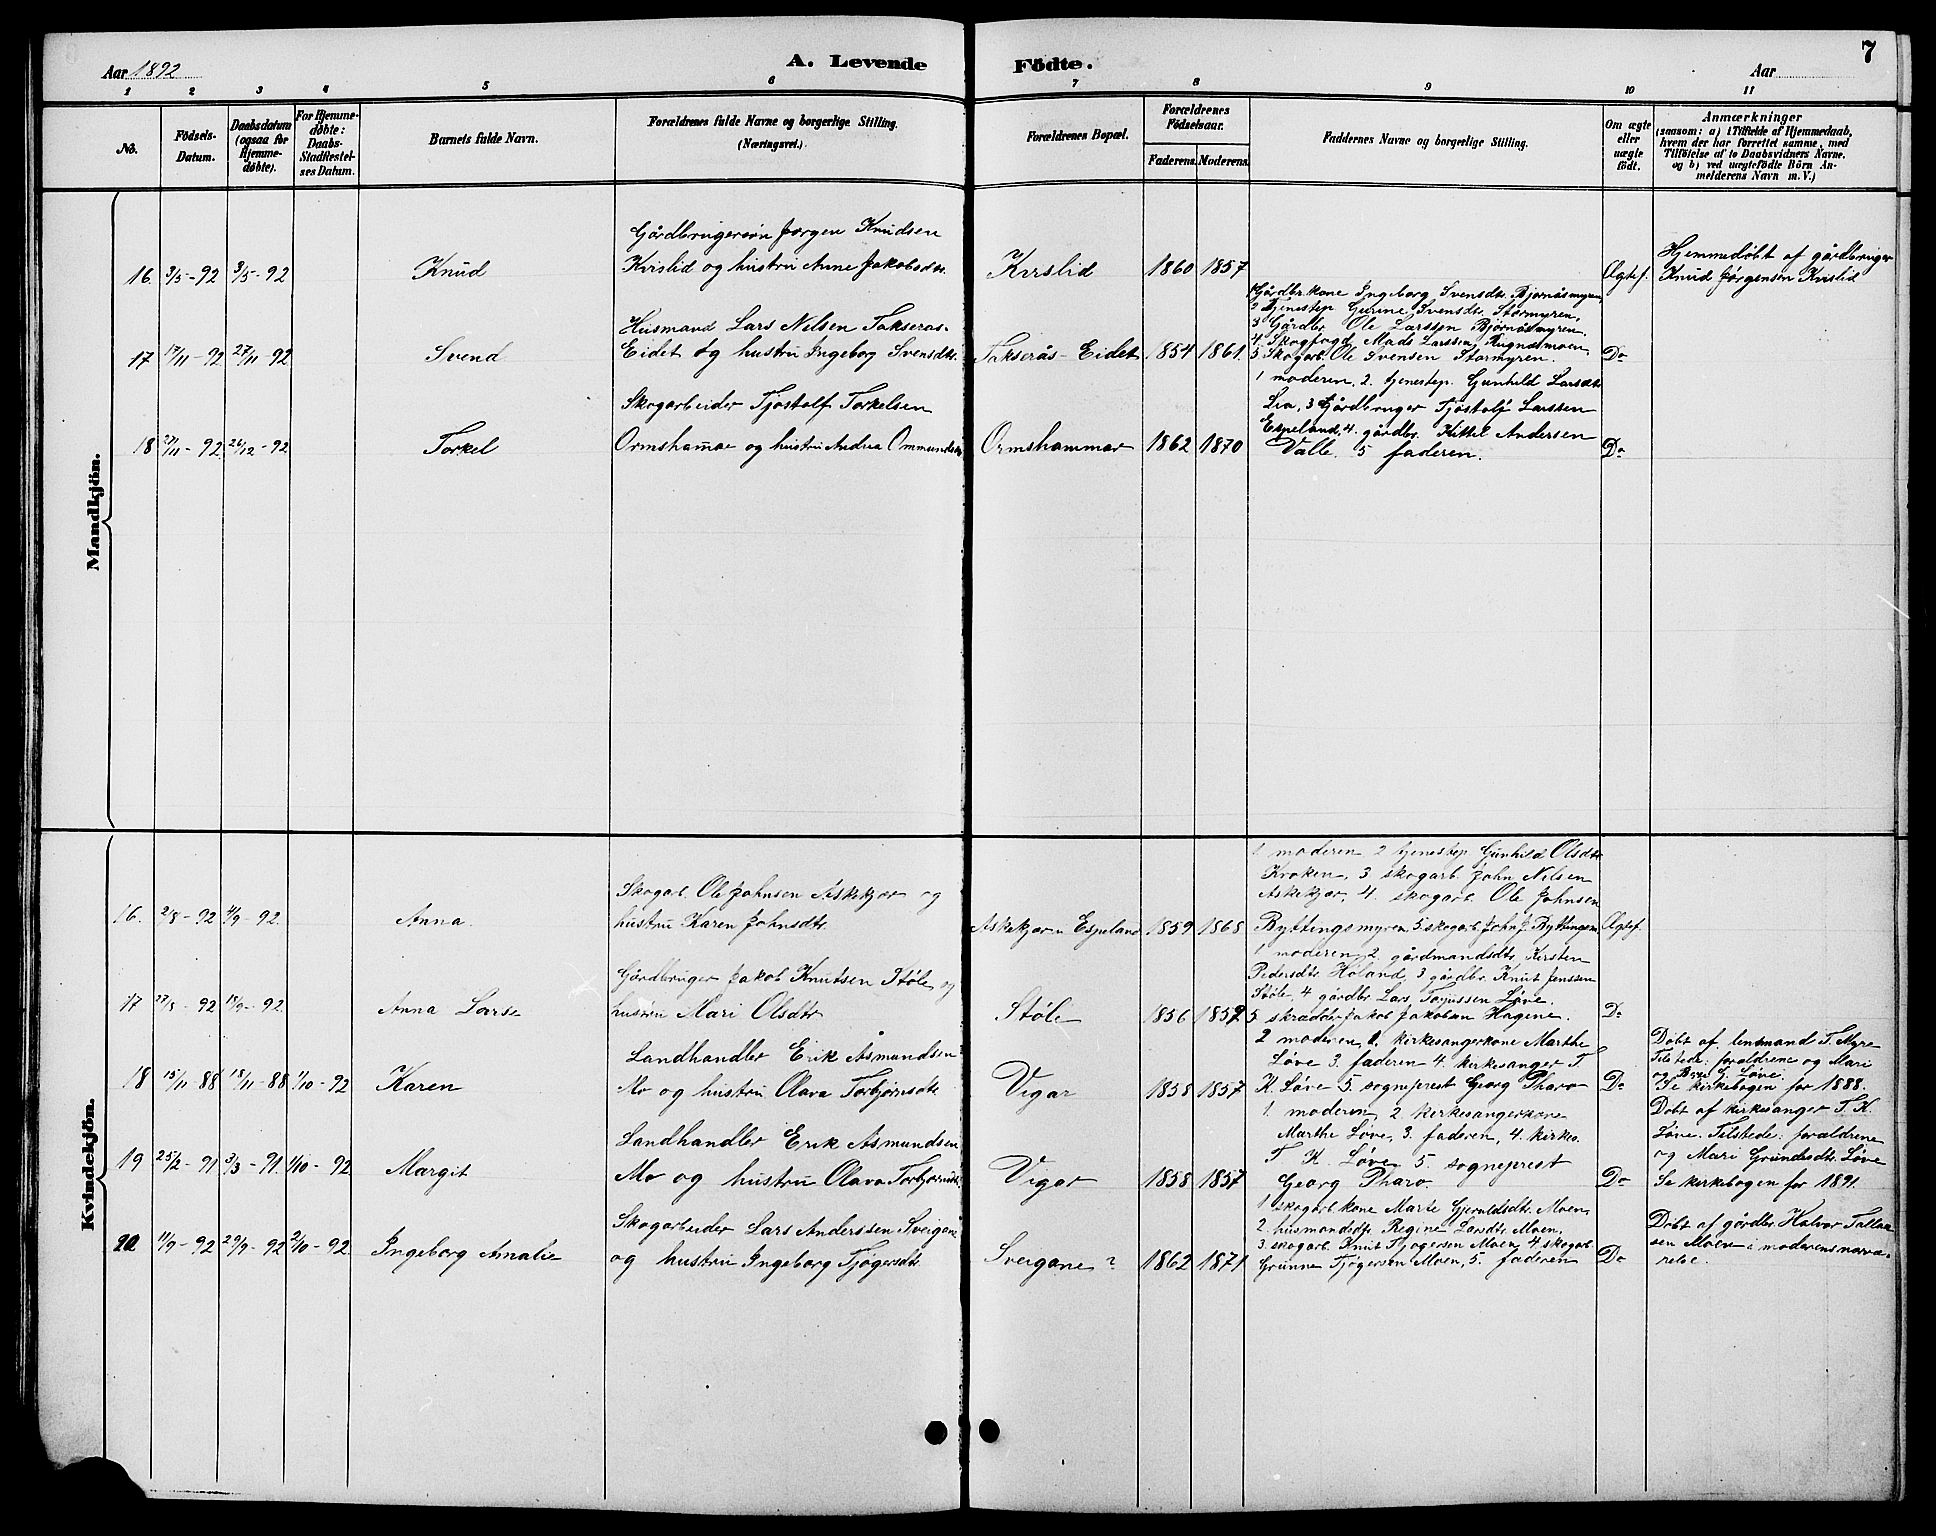 Aar 1892
A. Levende Födte.
Aar
7
1 2 3 4 5 6 7 8 9 10 11
No.
Födsels-Datum.
Daabsdatum (ogsaa for Hjemme-döbte).
For Hjemme-döbte: Daabs-Stadfæstel-ses Datum.
Barnets fulde Navn.
Forældrenes fulde Navne og borgerlige Stilling. (Næringsvei.)
Forældrenes Bopæl.
Forældrenes Födselsaar.
Faderens. Moderens.
Faddernes Navne og borgerlige Stilling.
Om ægte eller uægte födt.
Anmærkninger
(saasom: a) i Tilfælde af Hjemmedaab,
hvem der har forrettet samme, med
Tilföielse af to Daabsvidners Navne.
og b) ved uægtefödte Börn An-
melderens Navn m. V.)
Mandkjön.
16. 3/5-92 3/5-92
Knud
Gårdbrugersön Jørgen Knudsen
Kvislid og hustru Anne Jakobsdtr.
Kvislid
1860 1857
Ægtef.
Hjemmedøbt af gårdbruger
Knud Jørgensen Kvislid
17 17/11-92 27/11-92
Svend
Husmand Lars Nilsen Takserås-
Eidet og hustru Ingeborg Svensdtr.
Takserås-Eidet
1854 1861
1 Gårdbr.kone Ingeborg Svensdtr. Bjørnåsmyren,
2 Tjenestep Gurine Svensdtr. Stormyren,
3 Gårdbr. Ole Larssen Bjørnåsmyren
4 Skogfogd Mads Larssen Rugnåsmoen,
5 Skogarb. Ole Svensen Stormyren.
Do
18 27/11-92 26/12-92
Torkel
Skogarbeider Tjøstolf Torkelsen
Ormshammar og hustru Andrea Ommundsdtr
Ormshammar
1862 1870
1 moderen, 2. tjenestep. Gunhild Larsdtr
Lia, 3 Gårdbruger Tjøstolf Larssen
Espeland, 4. gårdbr. Kittel Andersen
Valle. 5 faderen.
Do
Kvindekjön.
16. 2/8-92 4/9-92
Anna.
Skogarb. Ole Johnsen Askekjær og
hustru Karen Johnsdtr.
Askekjær u Espeland
1859 1868
1 moderen 2 tjenestep Gunhild Olsdtr
Kroken, 3 skogarb. John Nilsen
Askekjær, 4. skogarb. Ole Johnsen
Byttingsmyren 5. skogarb. John J. Byttingsm.
Ægtef.
17 27/8-92 18/9-92.
Anna Larse
Gårdbruger Jakob Knutsen Støle og
hustru Mari Olsdtr
Støle
1856 1859
1 moderen, 2. gårdmandsdtr. Kirsten
Pedersdtr. Høland, 3 gårdbr. Knut Jenssen
Støle, 4 gårdbr Lars Tarjussen Løve.
5. skrædder Jakob Jakobsen Hagene.
Do
18 15/11 88 18/11-88 1/10-92
Karen
Landhandler Erik Åsmundsen
Mo og hustru Olava Torbjørnsdtr.
Vegar
1858 1857
2 moderen, 1. kirkesangerkone Marthe
Løve 3. faderen 4. kirkesanger T.
K. Løve 5. sogneprest Georg Pharo
Do
Døbt af lensmand T. Myre
Tilstede: forældrene og Mari
og G. Løve.
Se kirkebogen for 1888.
19 25/2-91 3/3-91. 1/10-92
Margit
Landhandler Erik Asmundsen
Mo og hustru Olava Torbjørnsdtr.
Vegar
1858 1857
1. moderen, 2. kirkesangerkone
Marthe Løve, 3. faderen, 4. kirkes.
T. K. Løve 5. sogneprest
Georg Pharo.
Do
Døbt af kirkesanger T. K.
Løve. Tilstede: forældrene
og Mari Grundesdtr. Løve
Se kirkebogen for 1891.
20 11/9-92 29/9-92 2/10-92
Ingeborg Amalie
Skogarbeider Lars Anderssen Sveigane
og hustru Ingeborg Tjøgersdtr.
Sveigane?
1862 1871
1 skogarb.kone Marte Gjeruldsdtr. Moen,
2. husmandsdtr. Regine Larsdtr. Moen,
3. skogarb. Knut Tjøgersen Moen 4. skogarb.
Grunne Tjøgersen Moen, 5. faderen
Do
Døbt af gårdbr. Halvor Tallak-
sen Moen i moderens nærvæ-
relse.